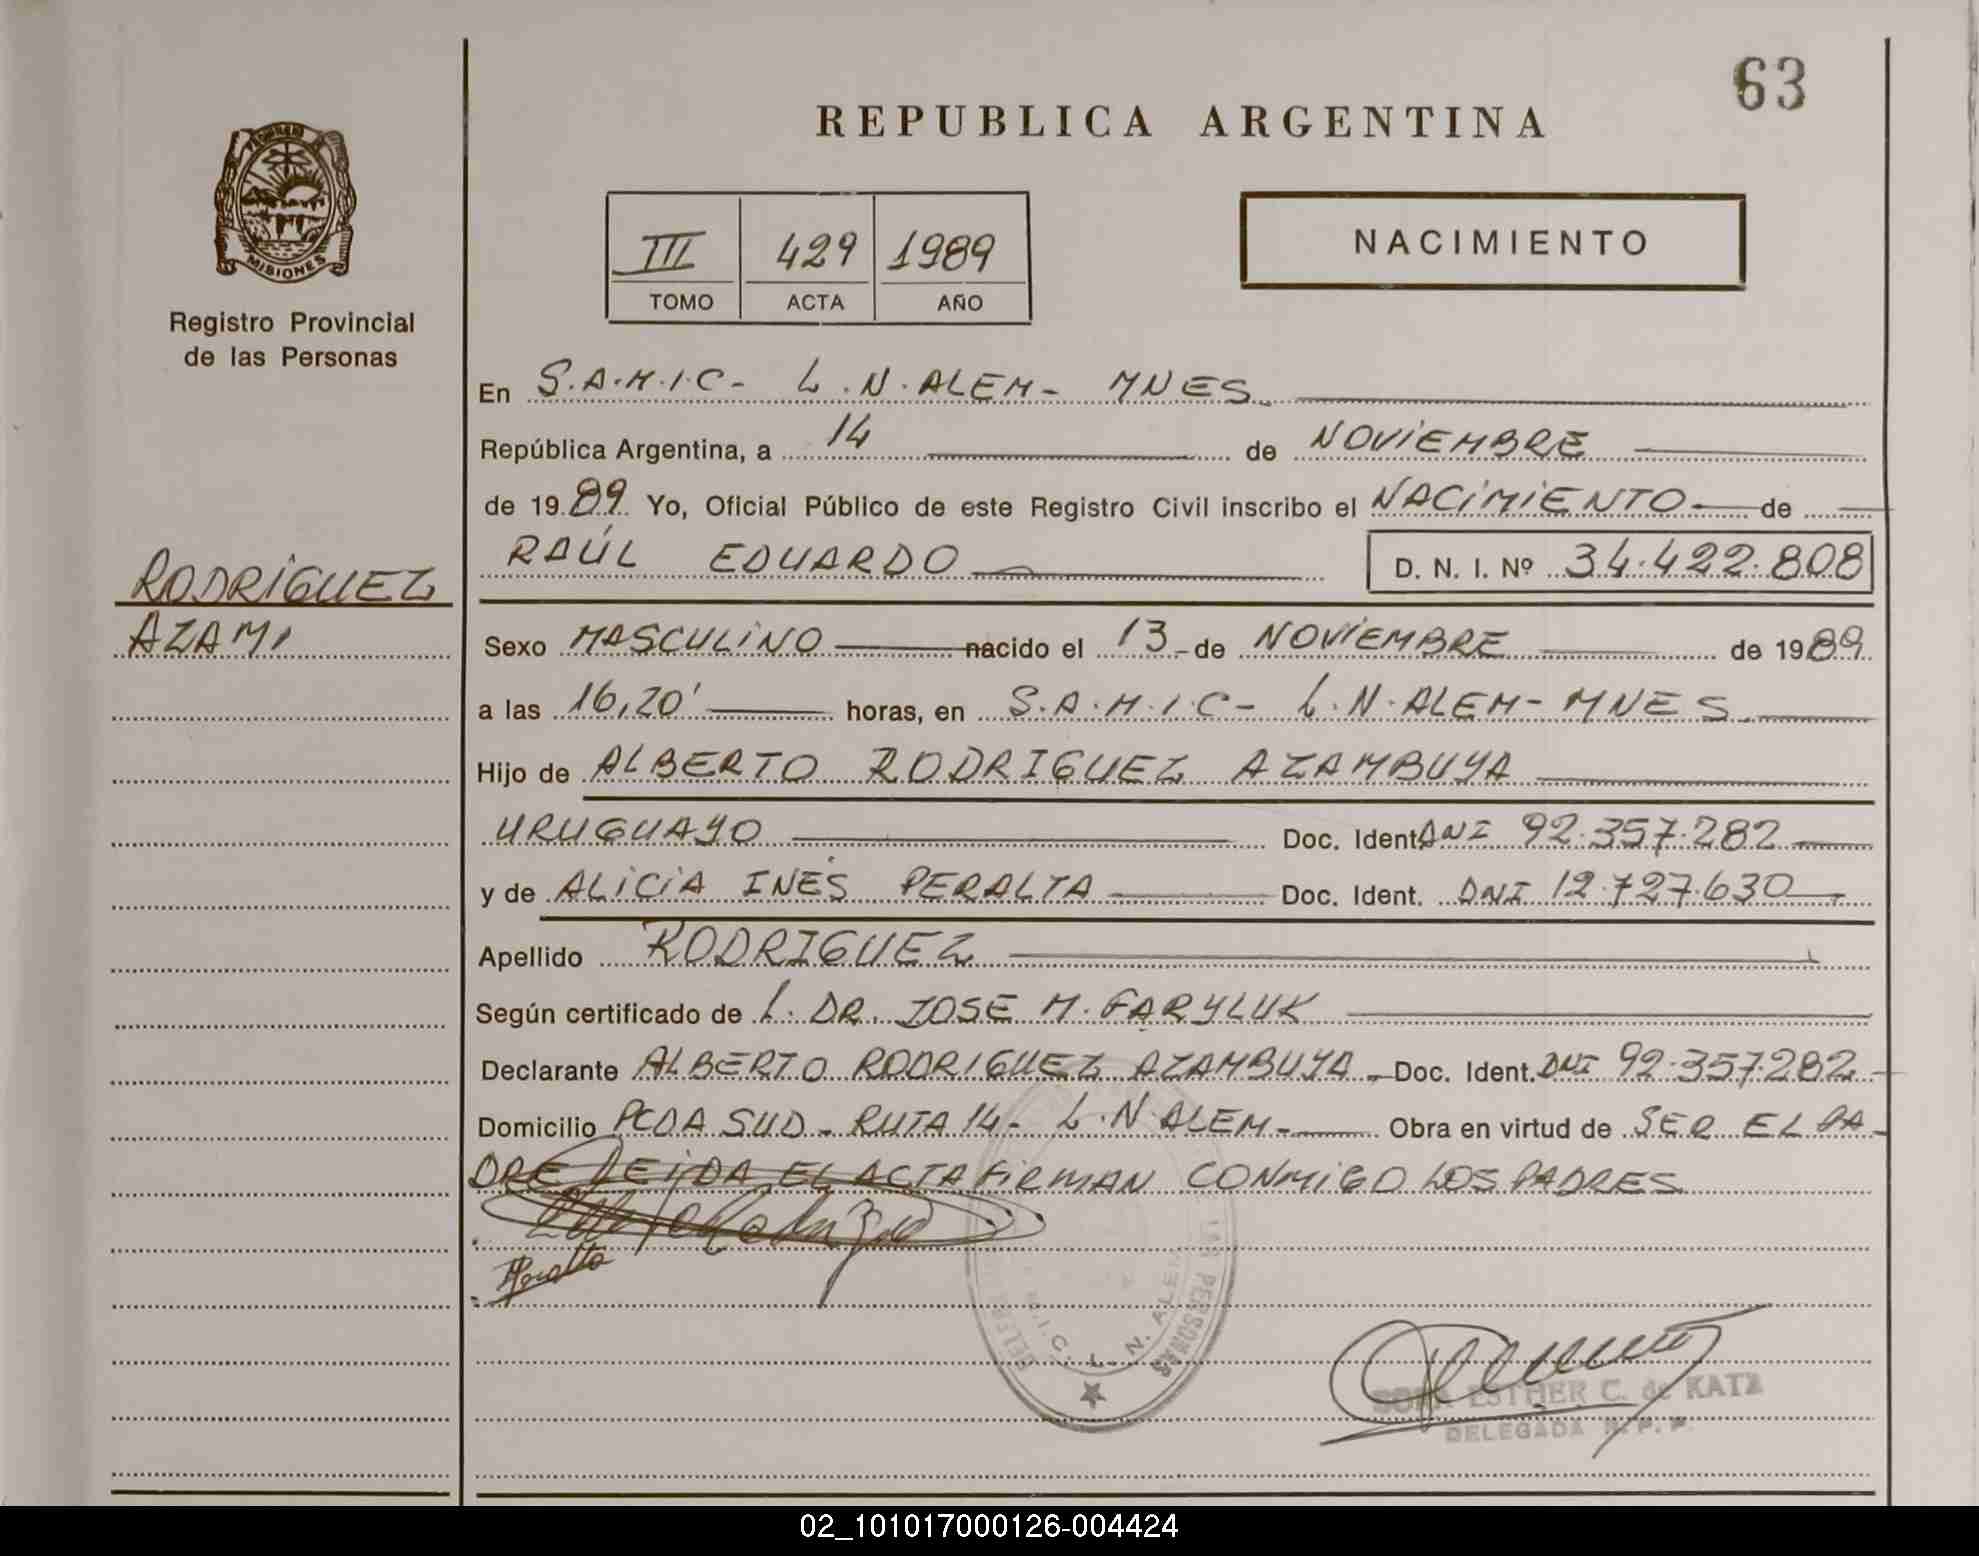 63
REPUBLICA ARGENTINA
MISIONES
Registro Provincial
de las Personas
III 429 1989
TOMO ACTA AÑO
NACIMIENTO
En S.A.M.I.C- L.N.ALEM- MNES
República Argentina, a 14 de NOVIEMBRE
de 1989 Yo, Oficial Público de este Registro Civil inscribo el NACIMIENTO de
RAÚL EDUARDO D. N. I. Nº 34.422.808
RODRIGUEZ
AZAMI
Sexo MASCULINO nacido el 13 de NOVIEMBRE de 1989
a las 16,20' horas, en S.A.M.I.C- L.N.ALEM- MNES
Hijo de ALBERTO RODRIGUEZ AZAMBUYA
URUGUAYO Doc. Ident. DNI 92.357.282
y de ALICIA INÉS PERALTA Doc. Ident. DNI 12.727.630
Apellido RODRIGUEZ
Según certificado de L. DR. JOSE M. GARYLUK
Declarante ALBERTO RODRIGUEZ AZAMBUYA Doc. Ident. DNI 92.357.282
Domicilio PCDA SUD - RUTA 14 - L.N ALEM- Obra en virtud de SER EL PA-
DRE LEIDA EL ACTA FIRMAN CONMIGO LOS PADRES
Peralta
LAS PERSONAS
L. N. ALEM
ESTHER C. de KATZ
DELEGADA R. P. P.
02_101017000126-004424